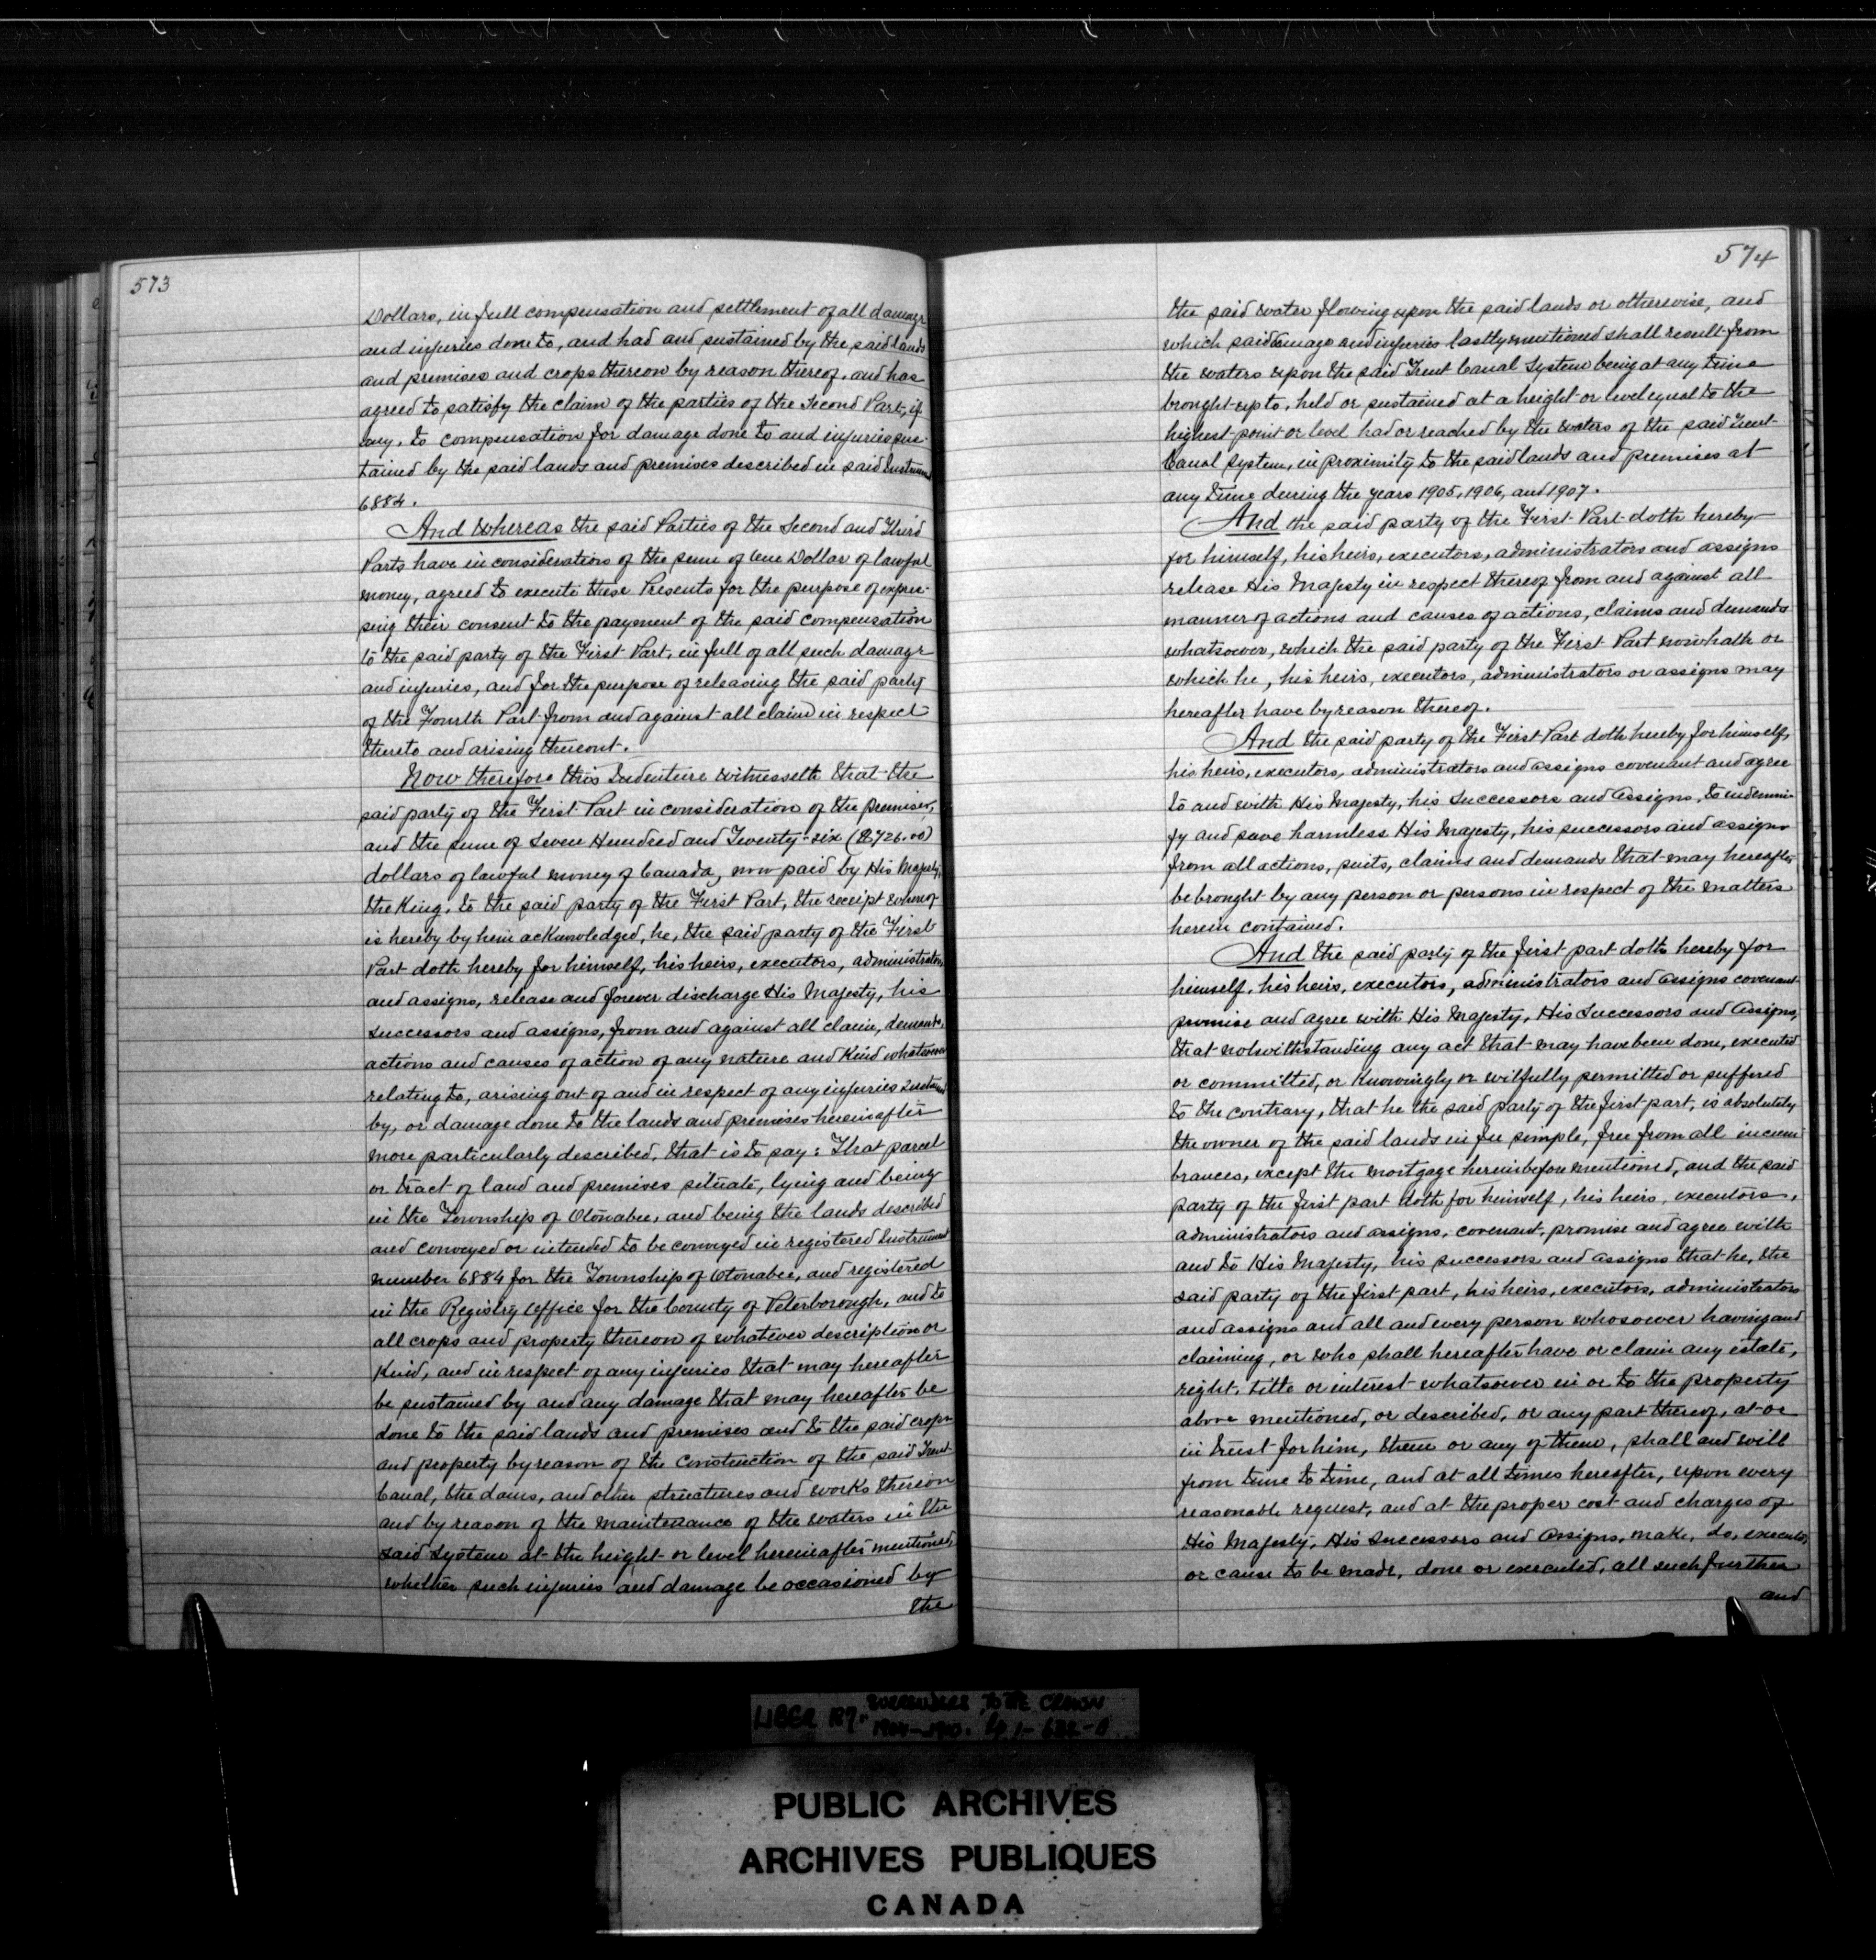 573
Dollars, in full compensation and settlement of all damage
and injuries done to, and had and sustained by the said lands
and premises and crops thereon by reason thereof, and has
agreed to satisfy the claim of the parties of the Second Part, if
any, to compensation for damage done to and injuries sus-
tained by the said lands and premises described in said Instrument
6884.
And whereas the said Parties of the Second and Third
Parts have in consideration of the sum of One Dollar of lawful
money, agreed to execute these Presents for the purpose of expres-
sing their consent to the payment of the said compensation
to the said party of the First Part, in full of all such damage
and injuries, and for the purpose of releasing the said party
of the Fourth Part from and against all claim in respect
thereto and arising thereout.
Now therefore this Indenture witnesseth that the
said party of the First Part in consideration of the premises,
and the sum of Seven Hundred and Twenty-six ($726.00)
dollars of lawful money of Canada, now paid by His Majesty,
the King, to the said party of the First Part, the receipt whereof
is hereby by him acknowledged, he, the said party of the First
Part doth hereby for himself, his heirs, executors, administrators
and assigns, release and forever discharge His Majesty, his
successors and assigns, from and against all claim, demands,
actions and causes of action of any nature and kind whatsoever
relating to, arising out of and in respect of any injuries sustained
by, or damage done to the lands and premises hereinafter
more particularly described, that is to say: That parcel
or tract of land and premises situate, lying and being
in the Township of Otonabee, and being the lands described
and conveyed or intended to be conveyed in registered Instrument
number 6884 for the Township of Otonabee, and registered
in the Registry Office for the County of Peterborough, and to
all crops and property thereon of whatever description or
kind, and in respect of any injuries that may hereafter
be sustained by and any damage that may hereafter be
done to the said lands and premises and to the said crops
and property by reason of the construction of the said Trent
Canal, the dams, and other structures and works thereon
and by reason of the maintenance of the waters in the
said system at the height or level hereinafter mentioned,
whether such injuries and damage be occasioned by
the
574
the said water flowing upon the said lands or otherwise, and
which said damage and injuries lastly mentioned shall result from
the waters upon the said Trent Canal System being at any time
brought up to, held or sustained at a height or level equal to the
highest point or level had or reached by the waters of the said Trent
Canal System, in proximity to the said lands and premises at
any time during the years 1905, 1906, and 1907.
And the said party of the First Part doth hereby
for himself, his heirs, executors, administrators and assigns
release His Majesty in respect thereof from and against all
manner of actions and causes of actions, claims and demands
whatsoever, which the said party of the First Part now hath or
which he, his heirs, executors, administrators or assigns may
hereafter have by reason thereof.
And the said party of the First Part doth hereby for himself,
his heirs, executors, administrators and assigns covenant and agree
to and with His Majesty, his Successors and Assigns, to indemni-
fy and save harmless His Majesty, his successors and assigns
from all actions, suits, claims and demands that may hereafter
be brought by any person or persons in respect of the matters
herein contained.
And the said party of the first part doth hereby for
himself, his heirs, executors, administrators and assigns covenant
promise and agree with His Majesty, His Successors and Assigns,
that notwithstanding any act that may have been done, executed
or committed, or knowingly or wilfully permitted or suffered
to the contrary, that he the said party of the first part, is absolutely
the owner of the said lands in fee simple, free from all incum-
brances, except the mortgage hereinbefore mentioned, and the said
party of the first part doth for himself, his heirs, executors,
administrators and assigns, covenant, promise and agree with
and to His Majesty, his successors and assigns that he, the
said party of the first part, his heirs, executors, administrators
and assigns and all and every person whosoever having and
claiming, or who shall hereafter have or claim any estate,
right, title or interest whatsoever in or to the property
above mentioned, or described, or any part thereof, at or
in trust for him, them or any of them, shall and will
from time to time, and at all times hereafter, upon every
reasonable request, and at the proper cost and charges of
His Majesty, His Successors and Assigns, make, do, execute,
or cause to be made, done or executed, all such further
and
LIBER 187. SURRENDERS TO THE CROWN
PUBLIC ARCHIVES
ARCHIVES PUBLIQUES
CANADA